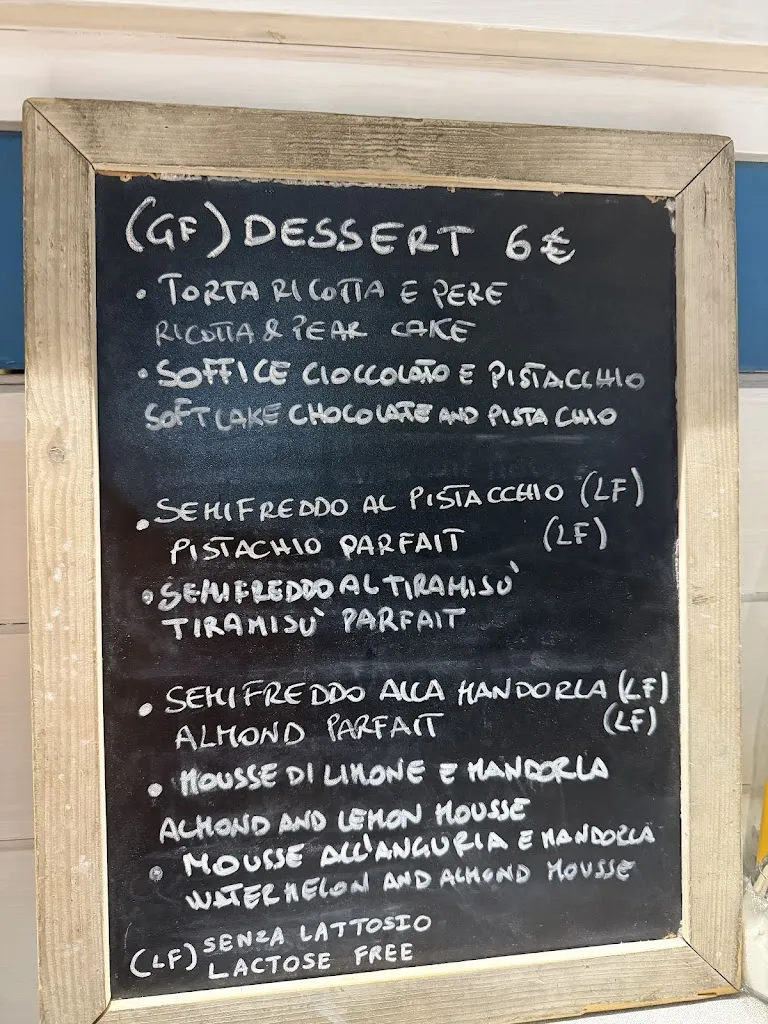 (GF) DESSERT 6€
• TORTA RICOTTA E PERE
RICOTTA & PEAR CAKE
• SOFFICE CIOCCOLATO E PISTACCHIO
SOFT CAKE CHOCOLATE AND PISTACHIO
• SEMIFREDDO AL PISTACCHIO (LF)
PISTACHIO PARFAIT (LF)
• SEMIFREDDO AL TIRAMISU'
TIRAMISU' PARFAIT
• SEMIFREDDO ALLA MANDORLA (LF)
ALMOND PARFAIT (LF)
• MOUSSE DI LIMONE E MANDORLA
ALMOND AND LEMON MOUSSE
• MOUSSE ALL'ANGURIA E MANDORLA
WATERMELON AND ALMOND MOUSSE
(LF) SENZA LATTOSIO
LACTOSE FREE